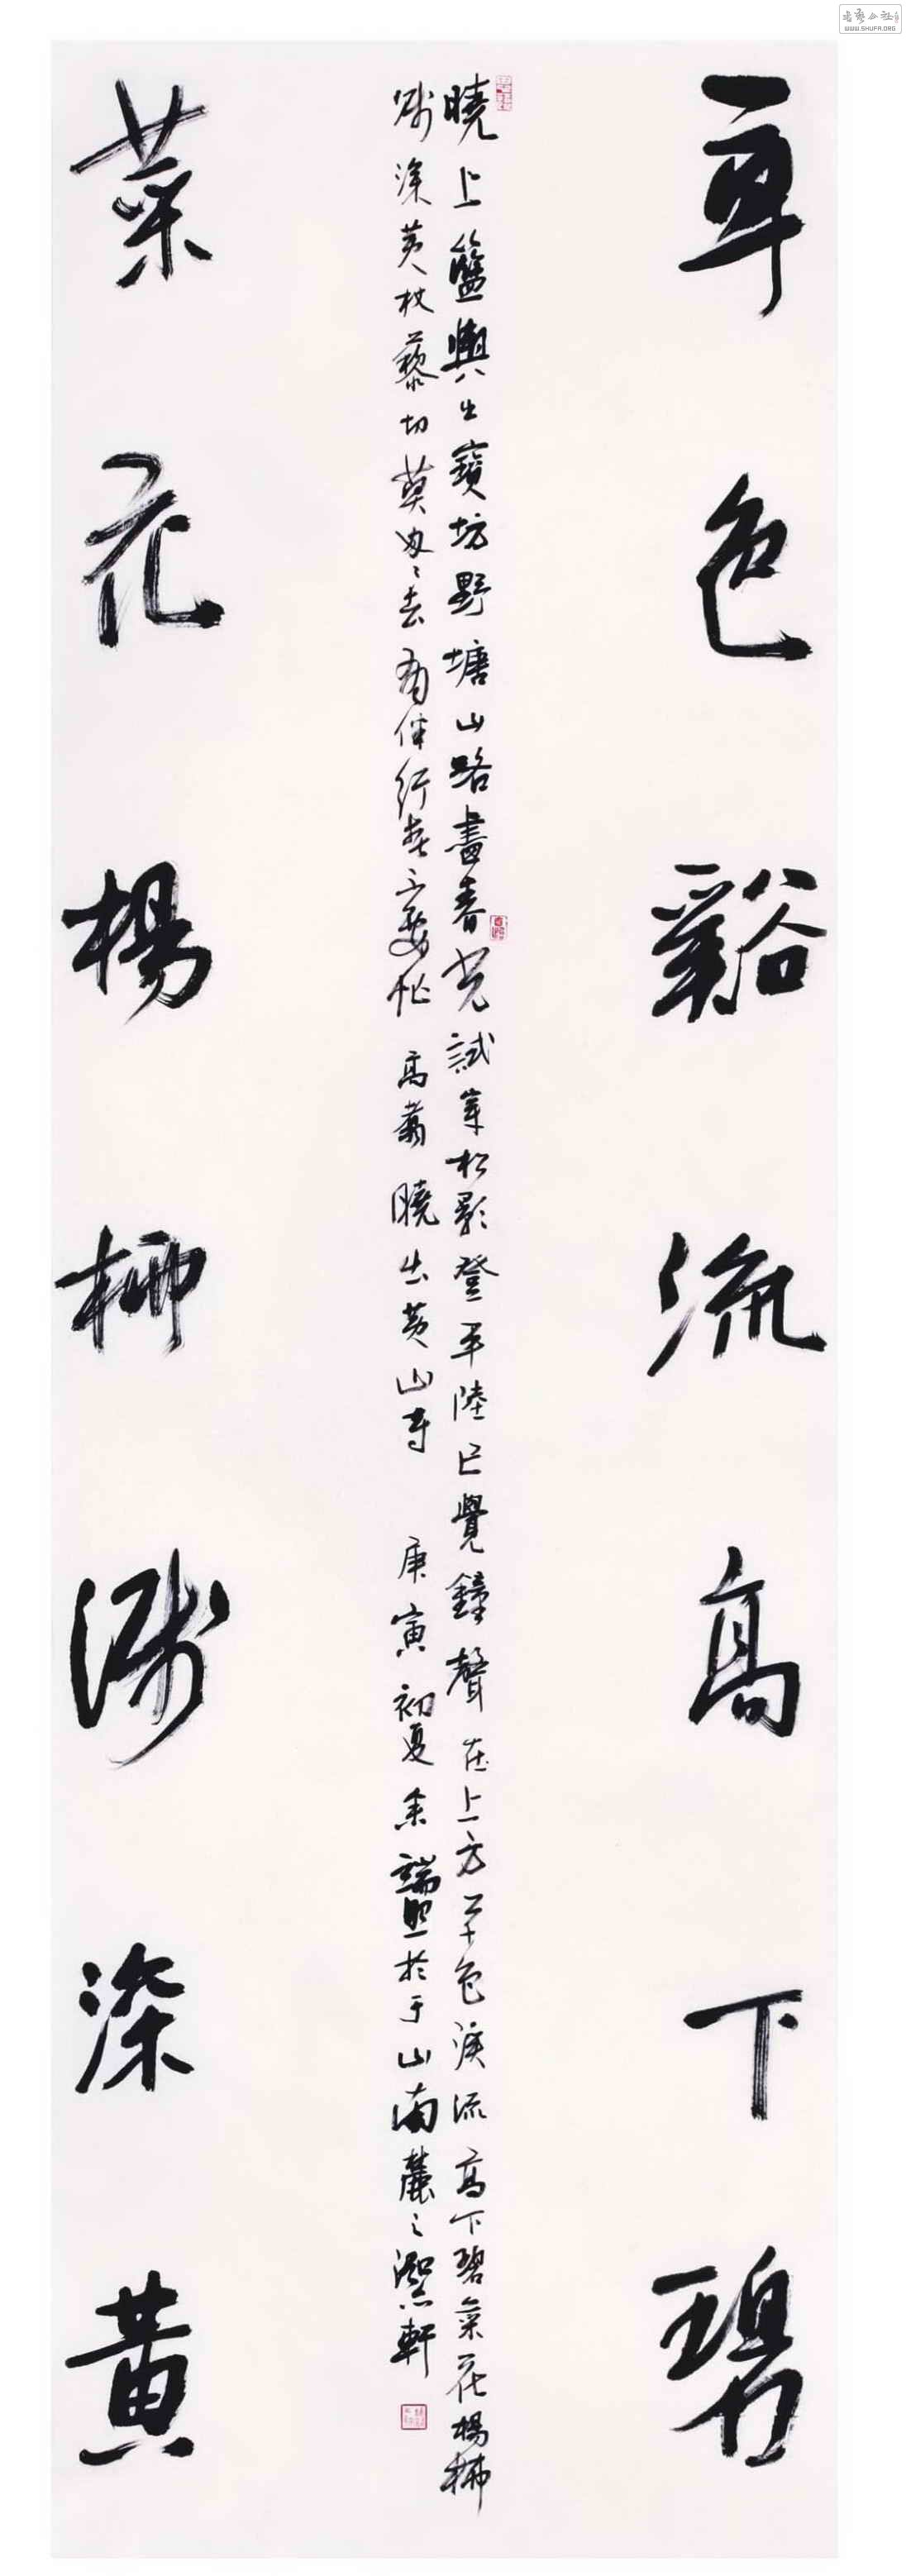 草色谿流高下碧
曉上籃輿出寶坊野塘山路盡春光試穿松影登平陸已覺鐘聲在上方草色溪流高下碧菜花楊柳
淺深黃杖藜切莫匆匆去有伴行春不要忙 高翥曉出黃山寺 庚寅初夏 余端照於于山南麓之澀軒
菜花楊柳淺深黃
WWW.SHUFA.ORG